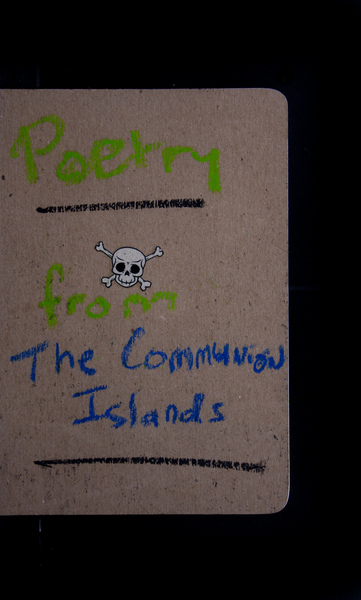 Poetry
from
The Communion
Islands